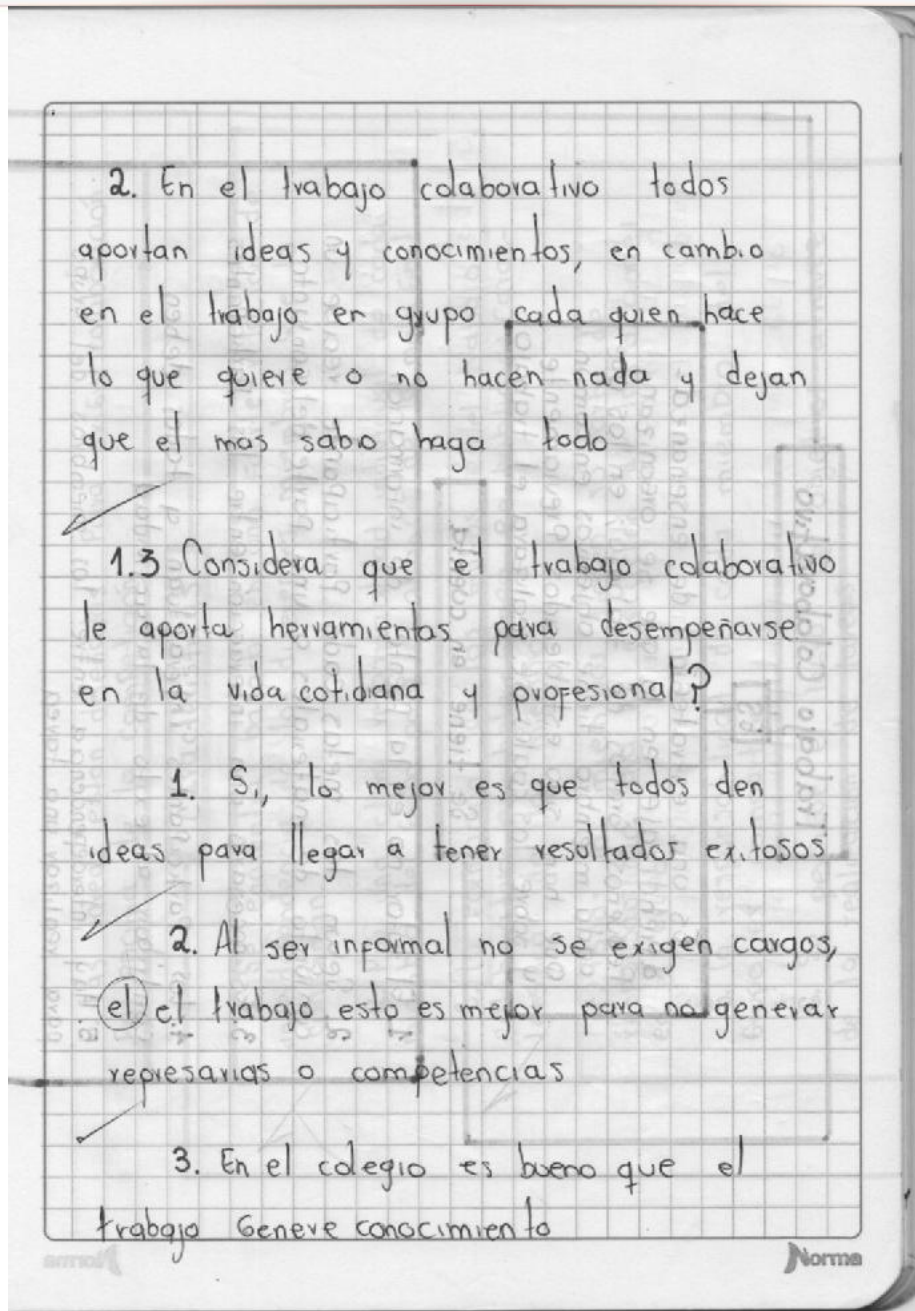 2. En el trabajo colaborativo todos
aportan ideas y conocimientos, en cambio
en el trabajo en grupo cada quien hace
lo que quiere o no hacen nada y dejan
que el mas sabio haga todo
1.3 Considera que el trabajo colaborativo
le aporta herramientas para desempeñarse
en la vida cotidiana y profesional?
1. Si, lo mejor es que todos den
ideas para llegar a tener resultados exitosos
2. Al ser informal no se exigen cargos,
el el trabajo esto es mejor para no generar
represarias o competencias
3. En el colegio es bueno que el
trabajo Genere conocimiento
Norma